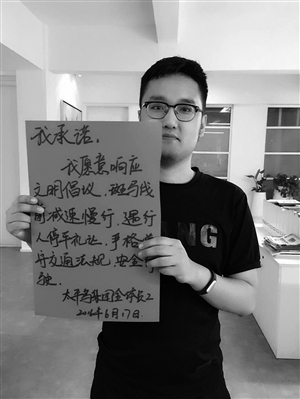 我承诺，
我愿意响应
文明倡议，斑马线
前减速慢行，遇行
人停车礼让，严格遵
守交通法规，安全行
驶。
太平鸟集团全体员工
2016年6月17日
NG